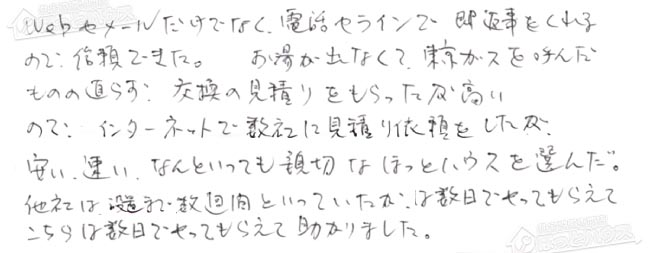 Webやメールだけでなく、電話やラインで 即返事をくれる
ので、信頼できた。 お湯が出なくて、東京ガスを呼んだ
ものの直らず、交換の見積りをもらったが高い
ので、インターネットで数社に見積り依頼をしたが、
安い、速い、なんといっても親切なほっとハウスを選んだ。
他社は、設置まで数週間といっていたが、は数日でやってもらえて
こちらは数日でやってもらえて助かりました。